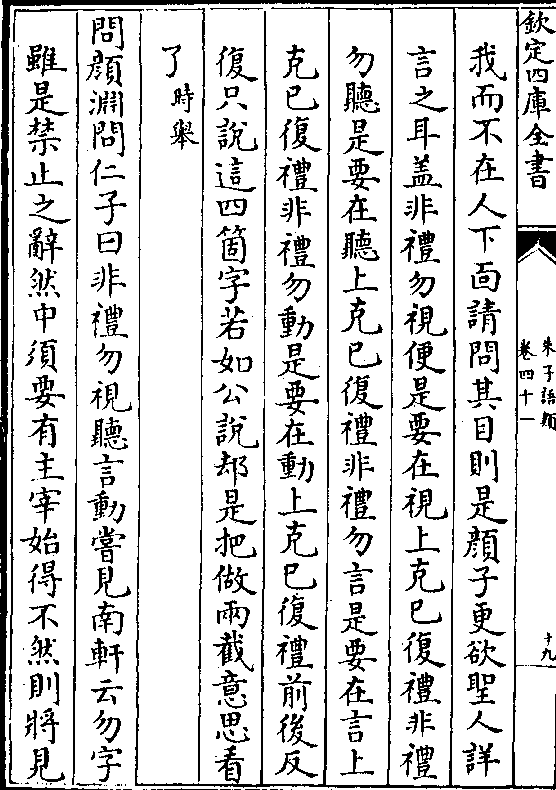 欽定四庫全書
朱子語類
卷四十一
十九
我而不在人下面請問其目則是顔子更欲聖人詳
言之耳盖非禮勿視便是要在視上克已復禮非禮
勿聽是要在聽上克已復禮非禮勿言是要在言上
克已復禮非禮勿動是要在動上克已復禮前後反
復只說這四箇字若如公說却是把做兩截意思看
了時舉
問顔淵問仁子曰非禮勿視聽言動嘗見南軒云勿字
雖是禁止之辭然中須要有主宰始得不然則將見